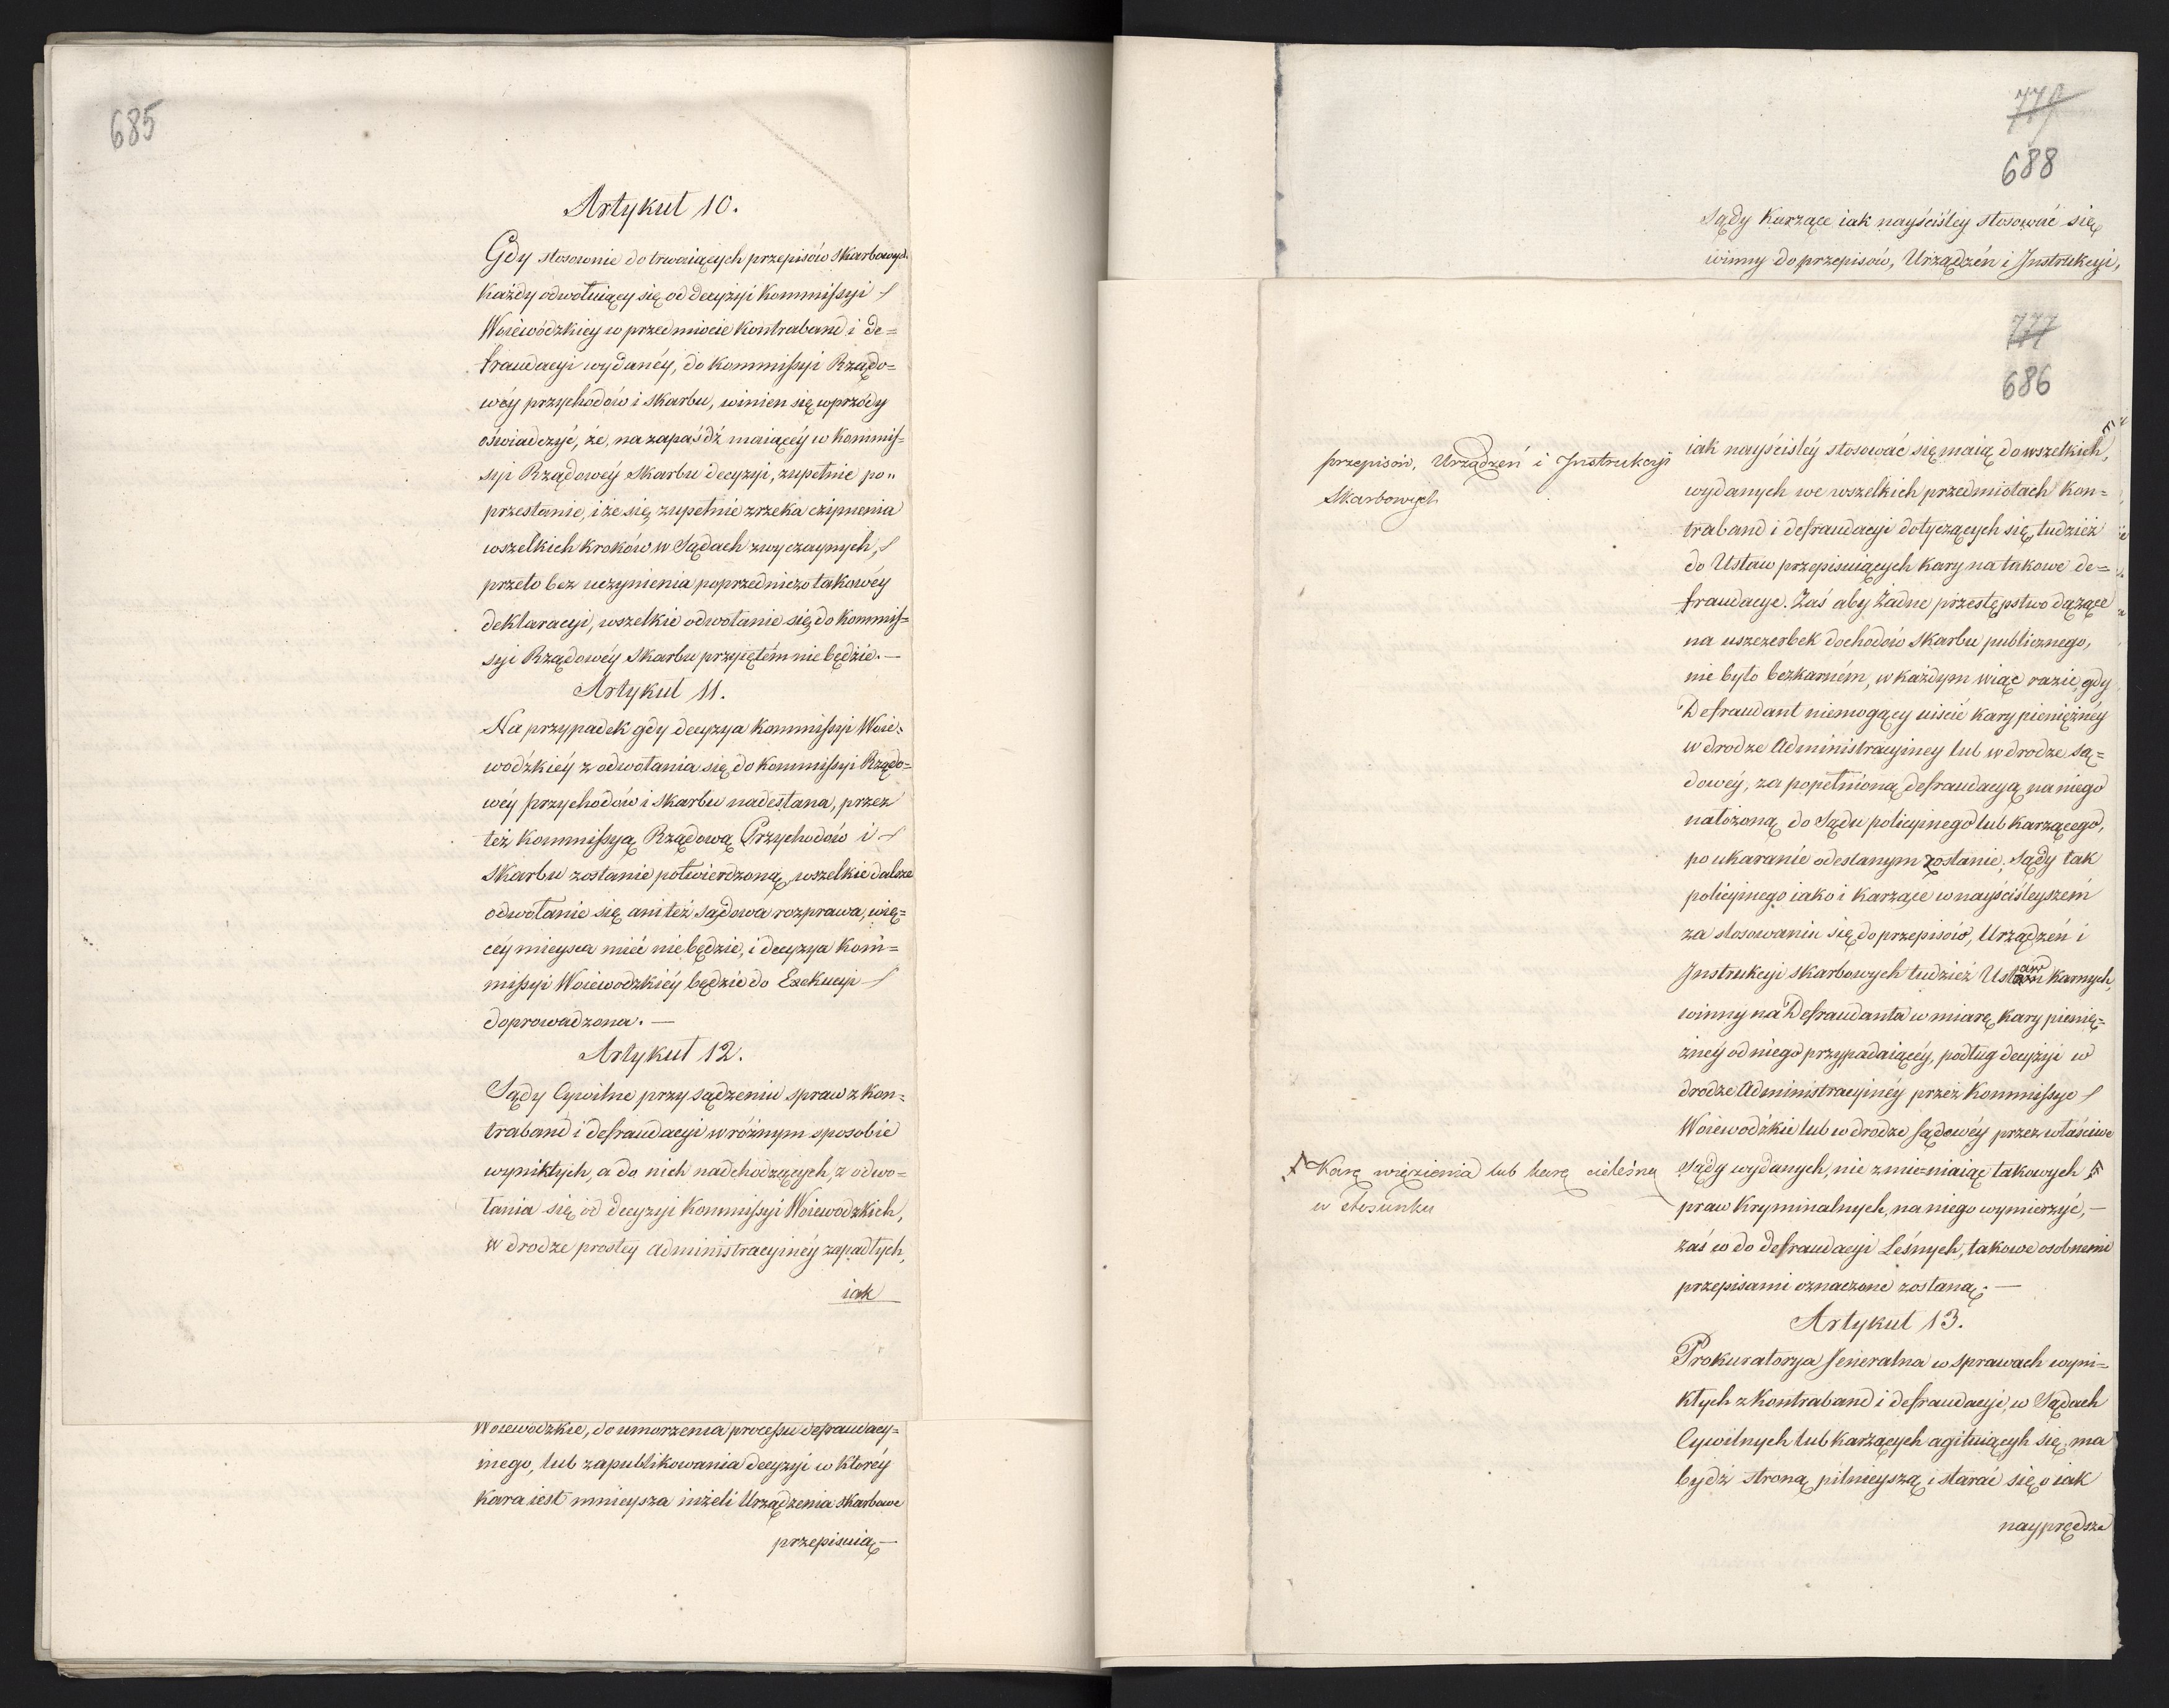 685
Artykuł 10.
Gdy stosownie do trwaiących przepisów Skarbowych
każdy odwołuiący się od decyzyi Kommissyi
Woiewódzkiey w przedmiocie Kontraband i de=
fraudacyi wydanéy, do Kommissyi Rządo=
wéy przychodów i Skarbu, winien się wprzódy
oświadczyć, że, na zapaśdź maiącéy w Kommis=
syi Rządowéy Skarbu decyzyi, zupełnie po„
przestanie, iże się zupełnie zrzeka czÿnienia
wszelkich kroków w Sądach zwyczaynych,
przeto bez uczynienia poprzedniczo takowéy
deklaracyi, wszelkie odwołanie się do Kommis=
syi Rządowéy Skarbu przyiętém nie będzie. —
Artykuł 11.
Na przypadek gdy decyzya Kommissyi Woie=
wódzkiéy z odwołania się do Kommissyi Rządo=
wéy przychodów i Skarbu nadesłana, przez
też Kommissyą Rządową Przychodów i
Skarbu zostanie potwierdzoną, wszelkie dalsze
odwołanie się ani też sądowa rozprawa, wię=
céy mieysca mieć nie będzie, i decyzya Kom=
missyi Woiewodzkiéy będzie do Exekucyi
doprowadzona. —
Artykuł 12.
Sądy Cywilne przy sądzeniu spraw z Kon=
traband i defraudacyi w różnym sposobie
wynikłych, a do nich nadchodzących, z odwo=
łania się od decyzyi Kommissyi Woiewodzkich,
w drodze prostey administracyinéy zapadłych,
iak
Woiewodzkie, do umorzenia processu defraudacy=
inego, lub zapublikowania decyzyi w któréy
kara iest mnieysza niżeli Urządzenia skarbowe
przepisuią —
688
Sądy Karzące iak nayściśley stosować się
winny do przepisów, Urządzeń i Instrukcyi,
777
686
przepisów, Urządzeń i Instrukcyi
Skarbowych
iak nayściśléy stosować się maią do wszelkich,
wydanych we wszelkich przedmiotach Kon=
traband i defraudacyi dotyczących się, tudzież
do Ustaw przepisuiących kary na takowe de=
fraudacye. Zaś aby żadne przestępstwo dążące
na uszczerbek dochodów Skarbu publicznego,
nie było bezkarném, w każdym wiąc razie, gdy
Defraudant niemogący uiścić kary pieniężnéy
w drodze Administracyiney lub w drodze są=
dowéy, za popełnioną defraudacyą na niego
nałożoną do Sądu policyinego lub karzącego,
po ukaranie odesłanym zostanie, Sądy tak
policyinego iako i karzące w nayściśleyszém
za stosowaniu się do przepisów, Urządzeń i
Instrukcyi skarbowych tudzież Ustaw karnych,
winny na Defraudanta w miarę kary pienię=
żnéy od niego przypadaiącéy, podług decyzyi w
drodze Administracyinéy przez Kommissye
Woiewódzkie lub w drodze sądowéy przez właściwe
Sądy wydanych, nie zmieniaiąc takowych
Karę więzienia lub karę cielesną
w stosunku
praw Kryminalnych, na niego wymierzyć, —
zaś co do defraudacyi Leśnych, takowe osobnemi
przepisami oznaczone zostaną. —
Artykuł 13.
Prokuratorya Jeneralna w sprawach wyni=
kłych z Kontraband i defraudacyi, w Sądach
Cywilnych lub karzących agituiących się, ma
bydź stroną pilnieyszą i starać się o iak
nayprędsze